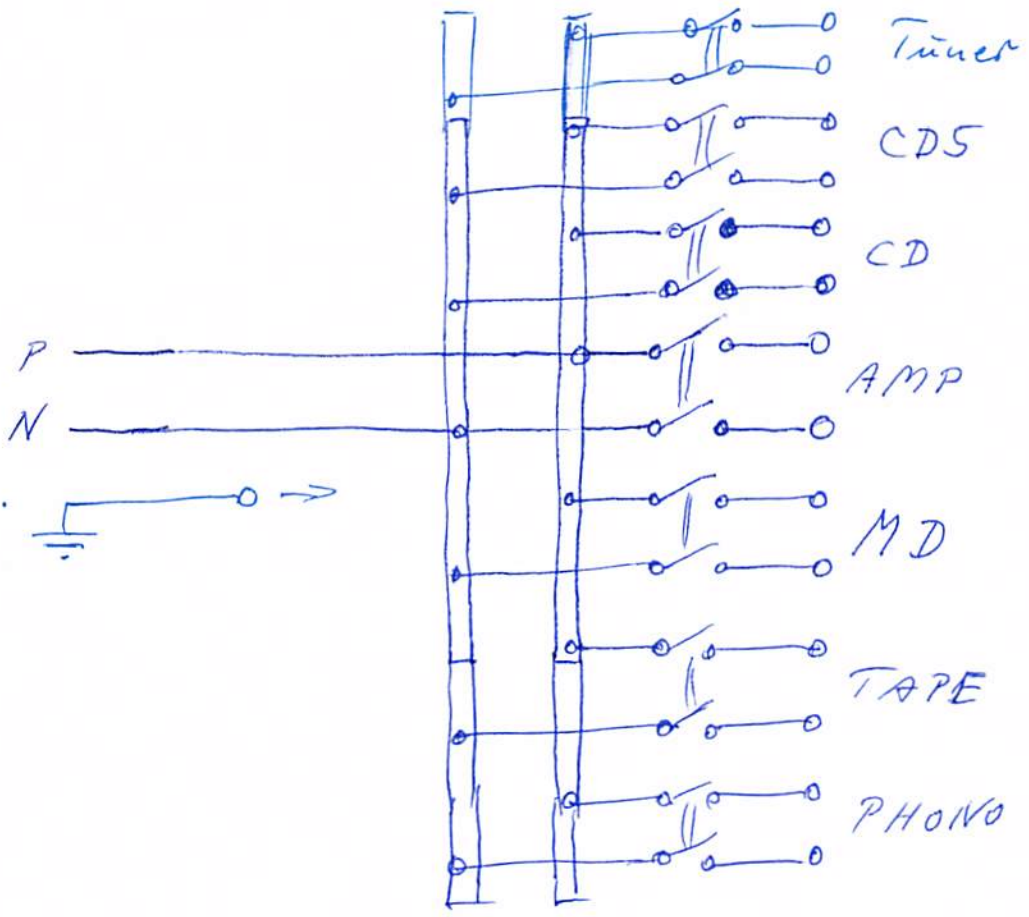 Tuner
CDS
CD
P
AMP
N
MD
TAPE
PHONO